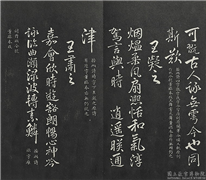 可翫古人詠舞雩今也同
斯歡
王凝之
烟熅柔風扇熙怡和氣淳
駕言興時 逍遙映通
津
王肅之
嘉會欣時遊豁朗暢心神吟
詠曲水瀨淥波轉素鱗